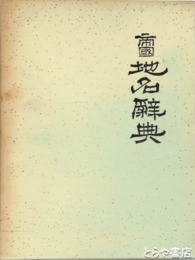 帝國地名辭典
とらや書店